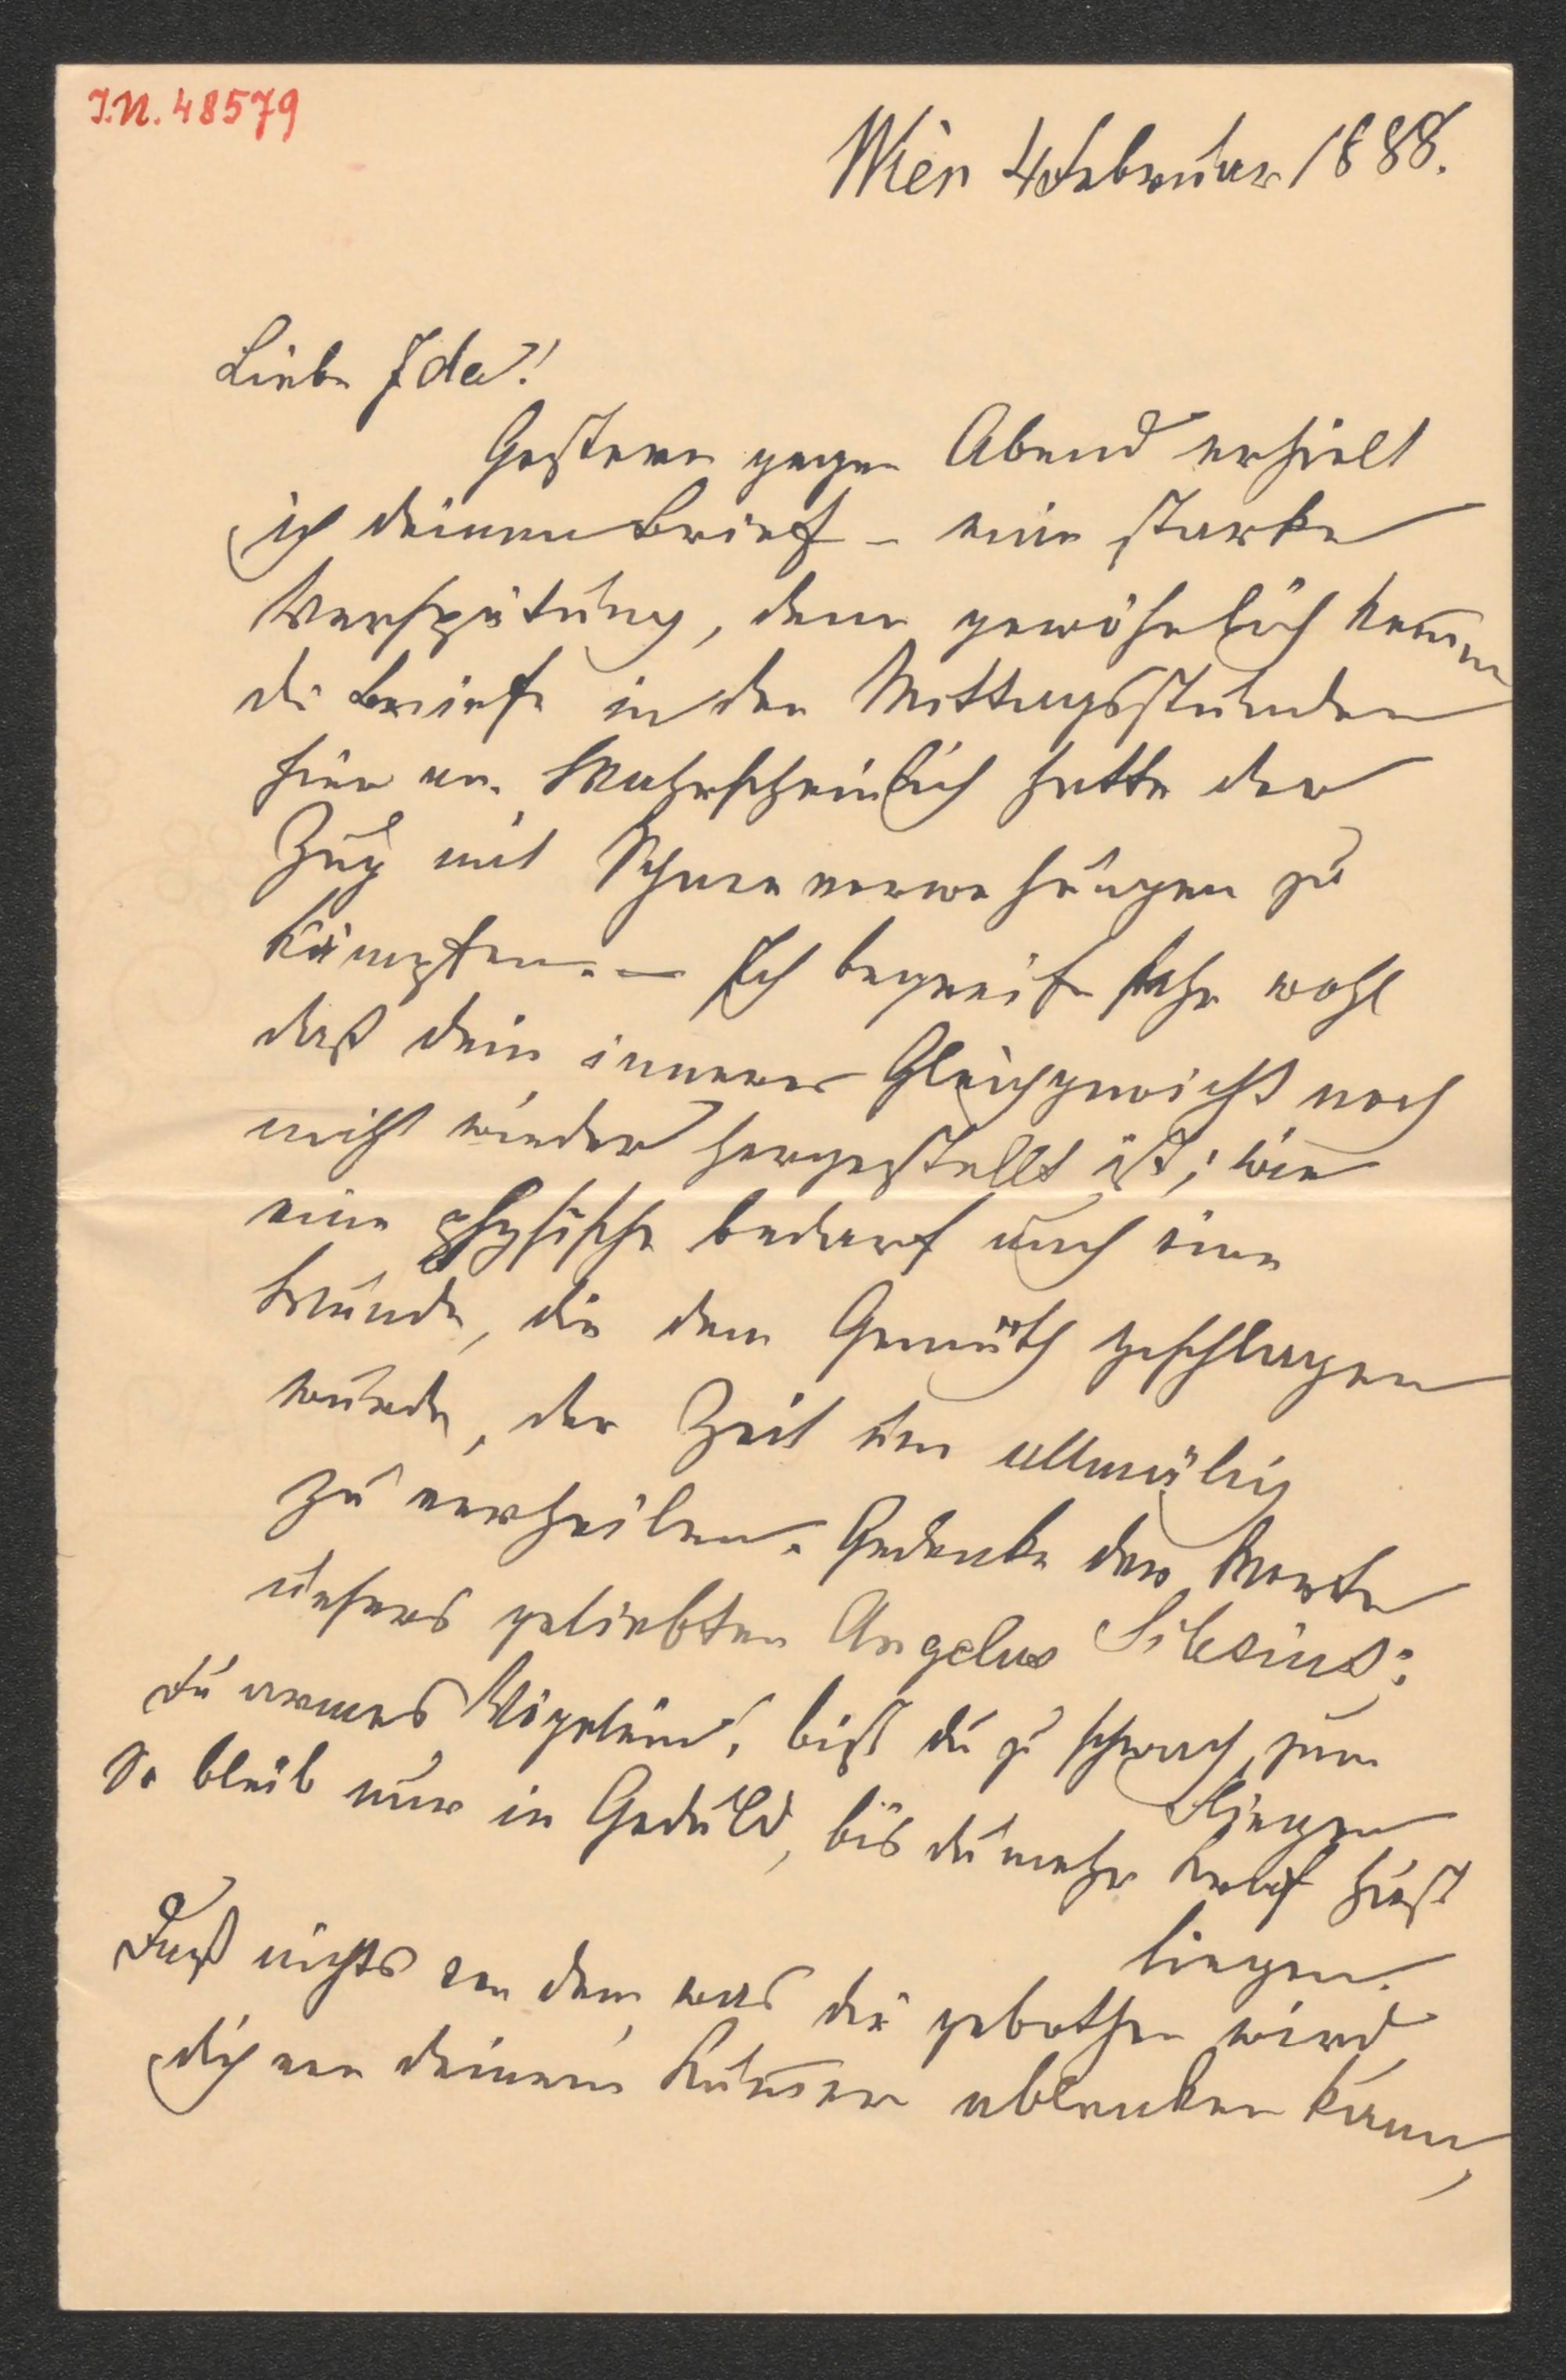 I.N. 48579
Wien 4 Februar 1888.
Liebe Ida!
Gestern gegen Abend erhielt
ich deinen Brief – eine starke
Verspätung, denn gewöhnlich kommen
die Briefe in den Mittagsstunden
hier an. Wahrscheinlich hatte der
Zug mit Schneeverwehungen zu
kämpfen. – Ich begreife sehr wohl
daß dein inneres Gleichgewicht noch
nicht wieder hergestellt ist; wie
eine physische bedarf auch eine
Wunde, die dem Gemüth geschlagen
wurde, der Zeit um allmälig
zu verheilen. Gedenke der Worte
unsers geliebten Angelus Silesius:
Du armes Vögelein, bist du zu schwach zum
Fliegen
So bleib nur in Geduld, bis du mehr Kraft hast
liegen.
Daß nichts von dem, was dir gebothen wird
dich von deinem Kummer ablenken kann,